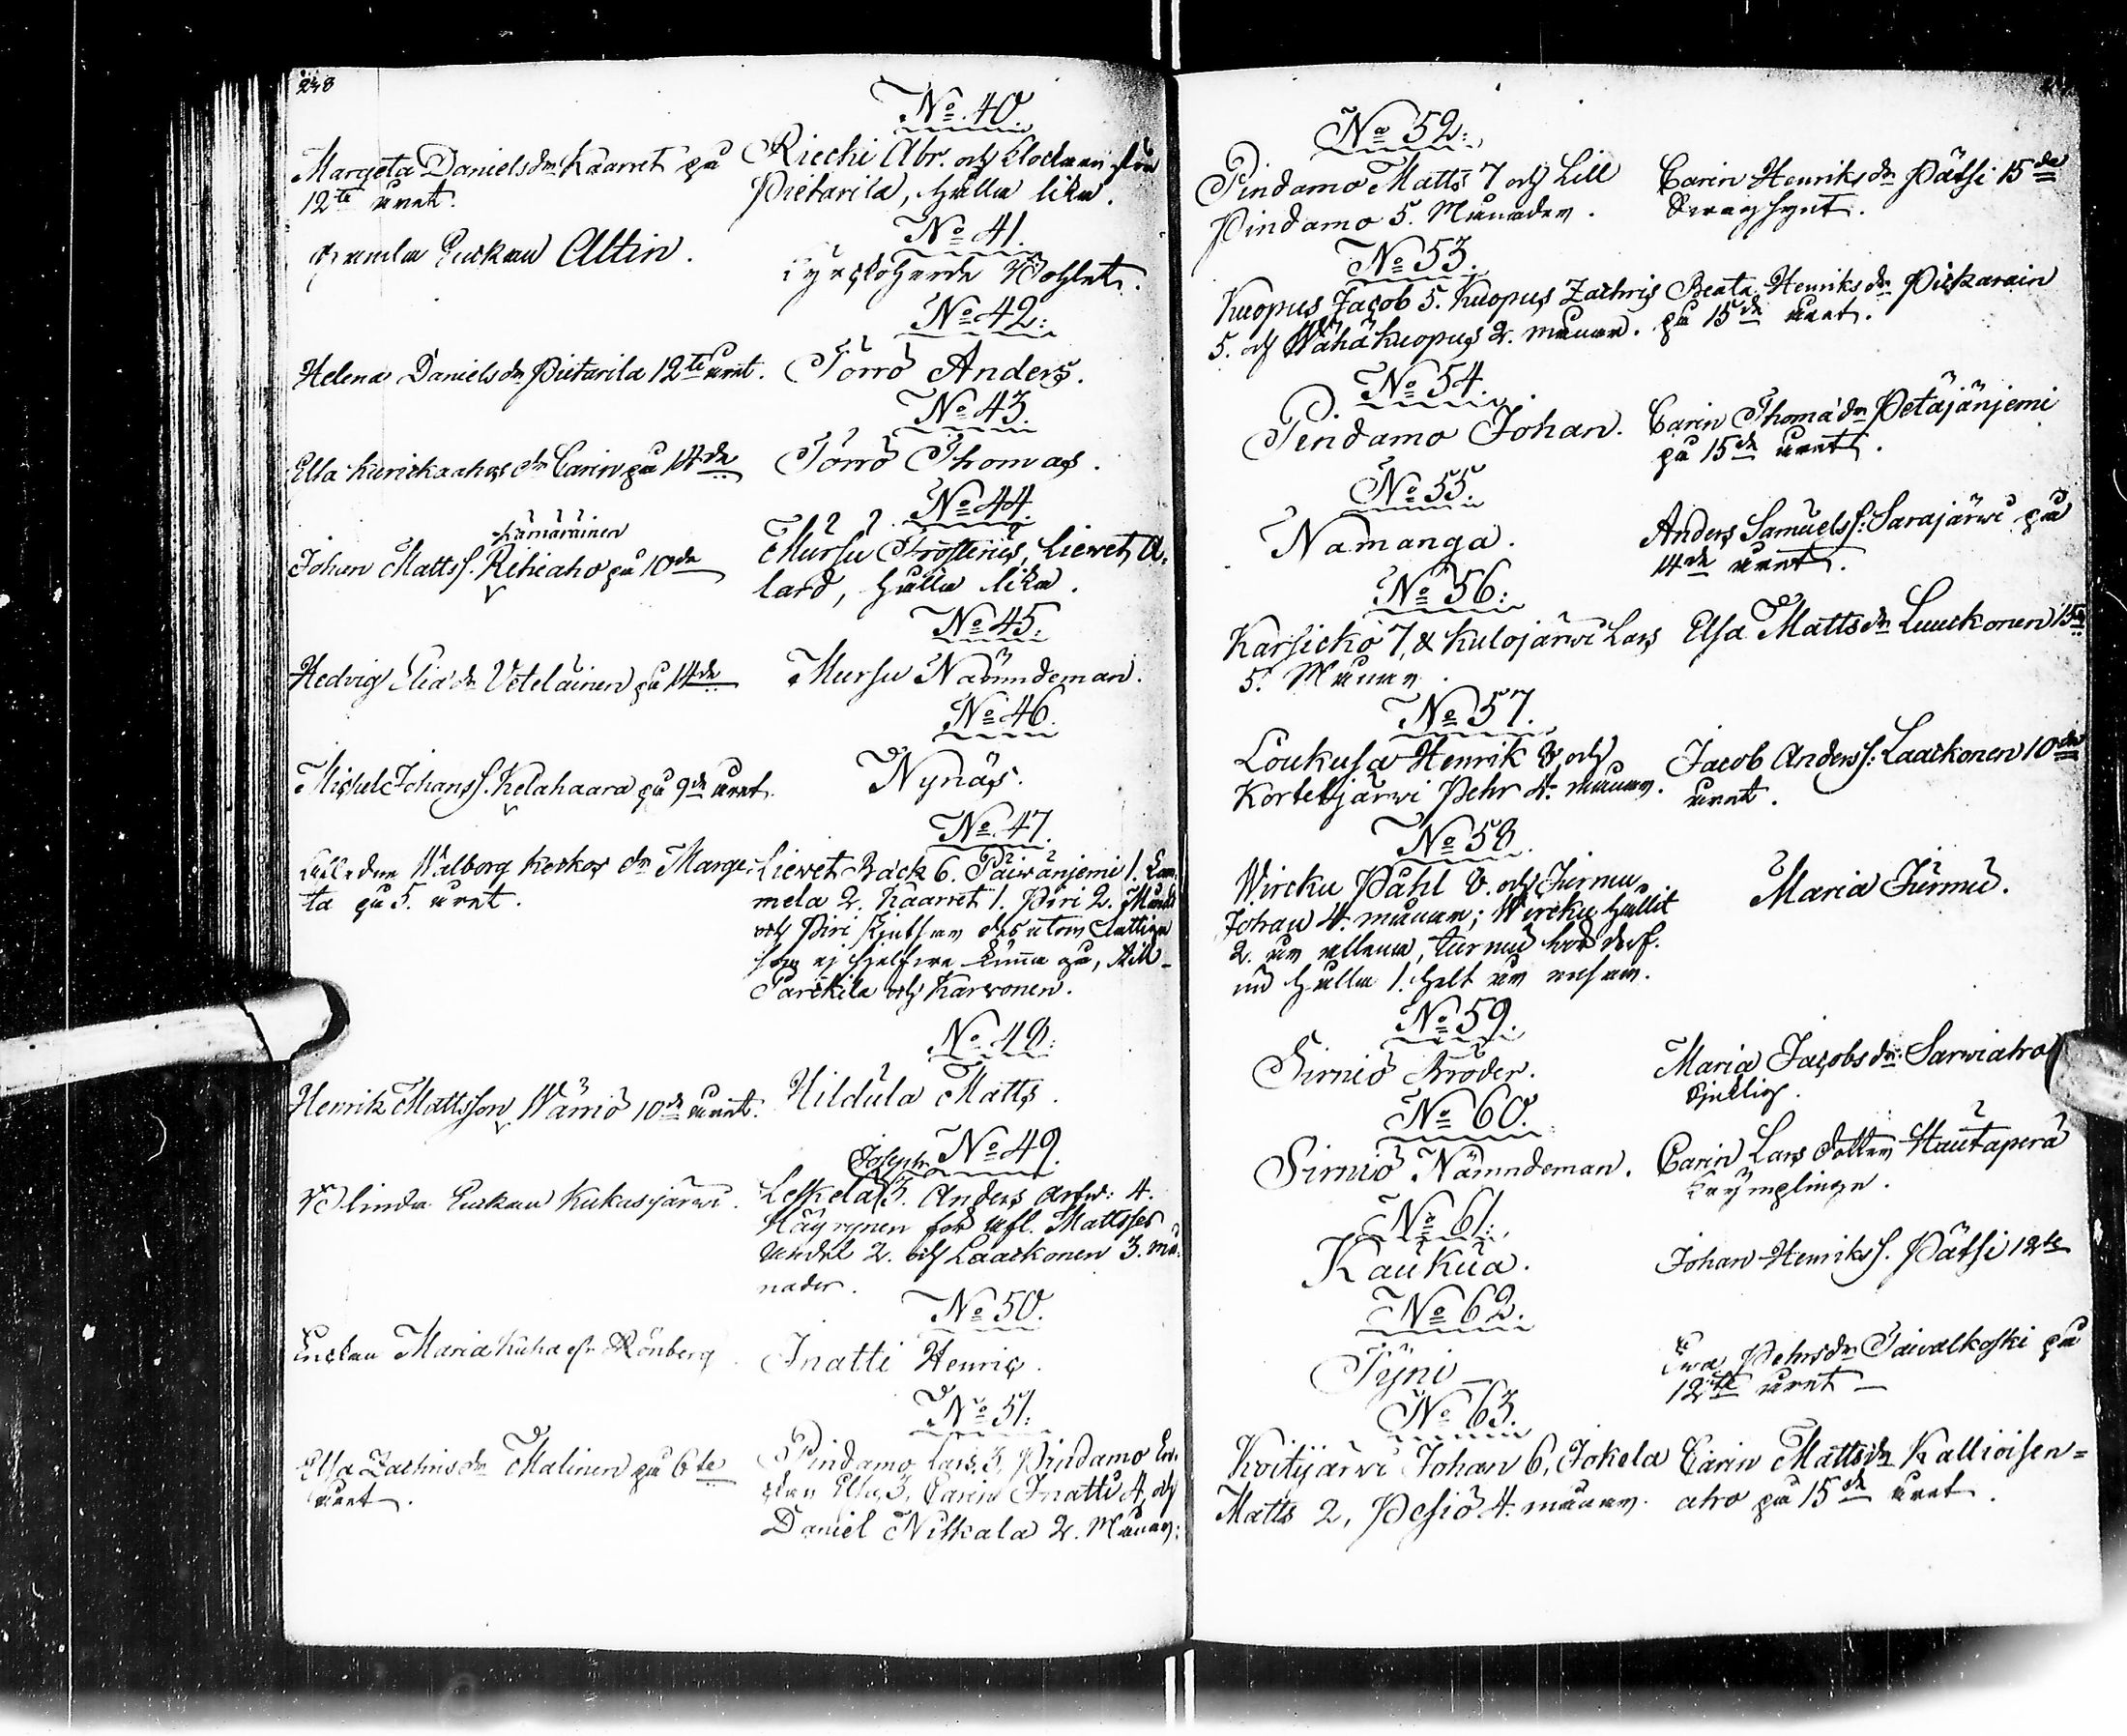 248
No 40.
Margeta Danielsdr Kaarret på
12te året.
Riecki Abr. och Clockaren från
Pietarila, hålla lika.
No 41.
gamla Enckan Altin.
Kyrckoherde Wohlet.
No 42:
Helena Danielsdr Pietarila 12te året.
Törrö Anders.
No 43.
Elsa Kurickaahos dr Carin på 14de
Törrö Thomas.
No 44.
Hämäräinen
Johan Matts s. Rihiaho på 10de
Mursu Frosterus, Lievet, A-
lard, hålla lika.
No 45:
Hedvig Eliædr Veteläinen på 14de
Mursu Nämndeman.
No 46.
Michel Johans s. Kelahaara på 9de året.
Nynäs.
No 47.
Walborg Keskos dr Marge-
ta på 5. året.
Lievet Back 6. Päiwänjemi 1. Lam-
mela 2. Kaarret 1. Piri 2.
och Piri
Parckila och Karvonen.
No 48:
Henrik Mattsson Wäriö 10de året.
Hildula Matts.
No 49.
Joseph
blinda Enckan Kukasjärwi.
Leskelä 3. Anders 4.
Häyrynen för afl. Mattsses
andel 2. och Laackonen 3. må-
nader.
No 50.
Enckan Maria Rönberg
Inatti Henric.
No 51:
Elsa Zachrisdr Malinen på 6te
året.
Pindamo Lars 3, Pindamo En-
ckan Elsa 3, Carin Inatti 4, och
Daniel Niskala 2. Månar:
No 52:
Pindamo Matts 7 och Lill
Pindamo 5. Månader.
Carin Henriksdr Pätsi 15de
Swagsynt.
No 53.
Kuopus Jacob 5. Kuopus Zachris
5. och Wähä Kuopus 2. månar.
Beata Henriksdr Pickarain
på 15de året.
No 54.
Pindamo Johan.
Carin Thomædr Petäjänjemi
på 15de året.
No 55.
Namanga.
Anders Samuels s: Sarajärwi på
14de året.
No 56:
Karsicko 7, & Kulojärwi Lars
5. Månar.
Elsa Mattsdr Luuckonen 15de
No 57.
Loukusa Henrik 8 och
Kortetjärwi Pehr 4. månar.
Jacob Anders s: Laackonen 10de
året.
No 58.
Wircku Påhl 8. och Jurmu
Johan 4. månar; Wircku hållit
2. år allena,
nu hålla 1. helt år
Maria Jurmu.
No 59.
Sirniö Bröder.
Maria Jacobsdr: Sarwiaho
Sjuklig.
No 60.
Sirniö Nämndeman.
Carin Lars dotter Hautaperä
krymplinge.
No 61:
Kaukua.
Johan Henriks s. Pätsi 12te
No 62.
Tyni
Ewa Pehrsdr Taivalkoski på
12te året
No 63.
Koitijärwi Johan 6, Jokela
Matts 2, Pesiö 4. månar.
Carin Mattsdr Kallioisen=
aho på 15de året.